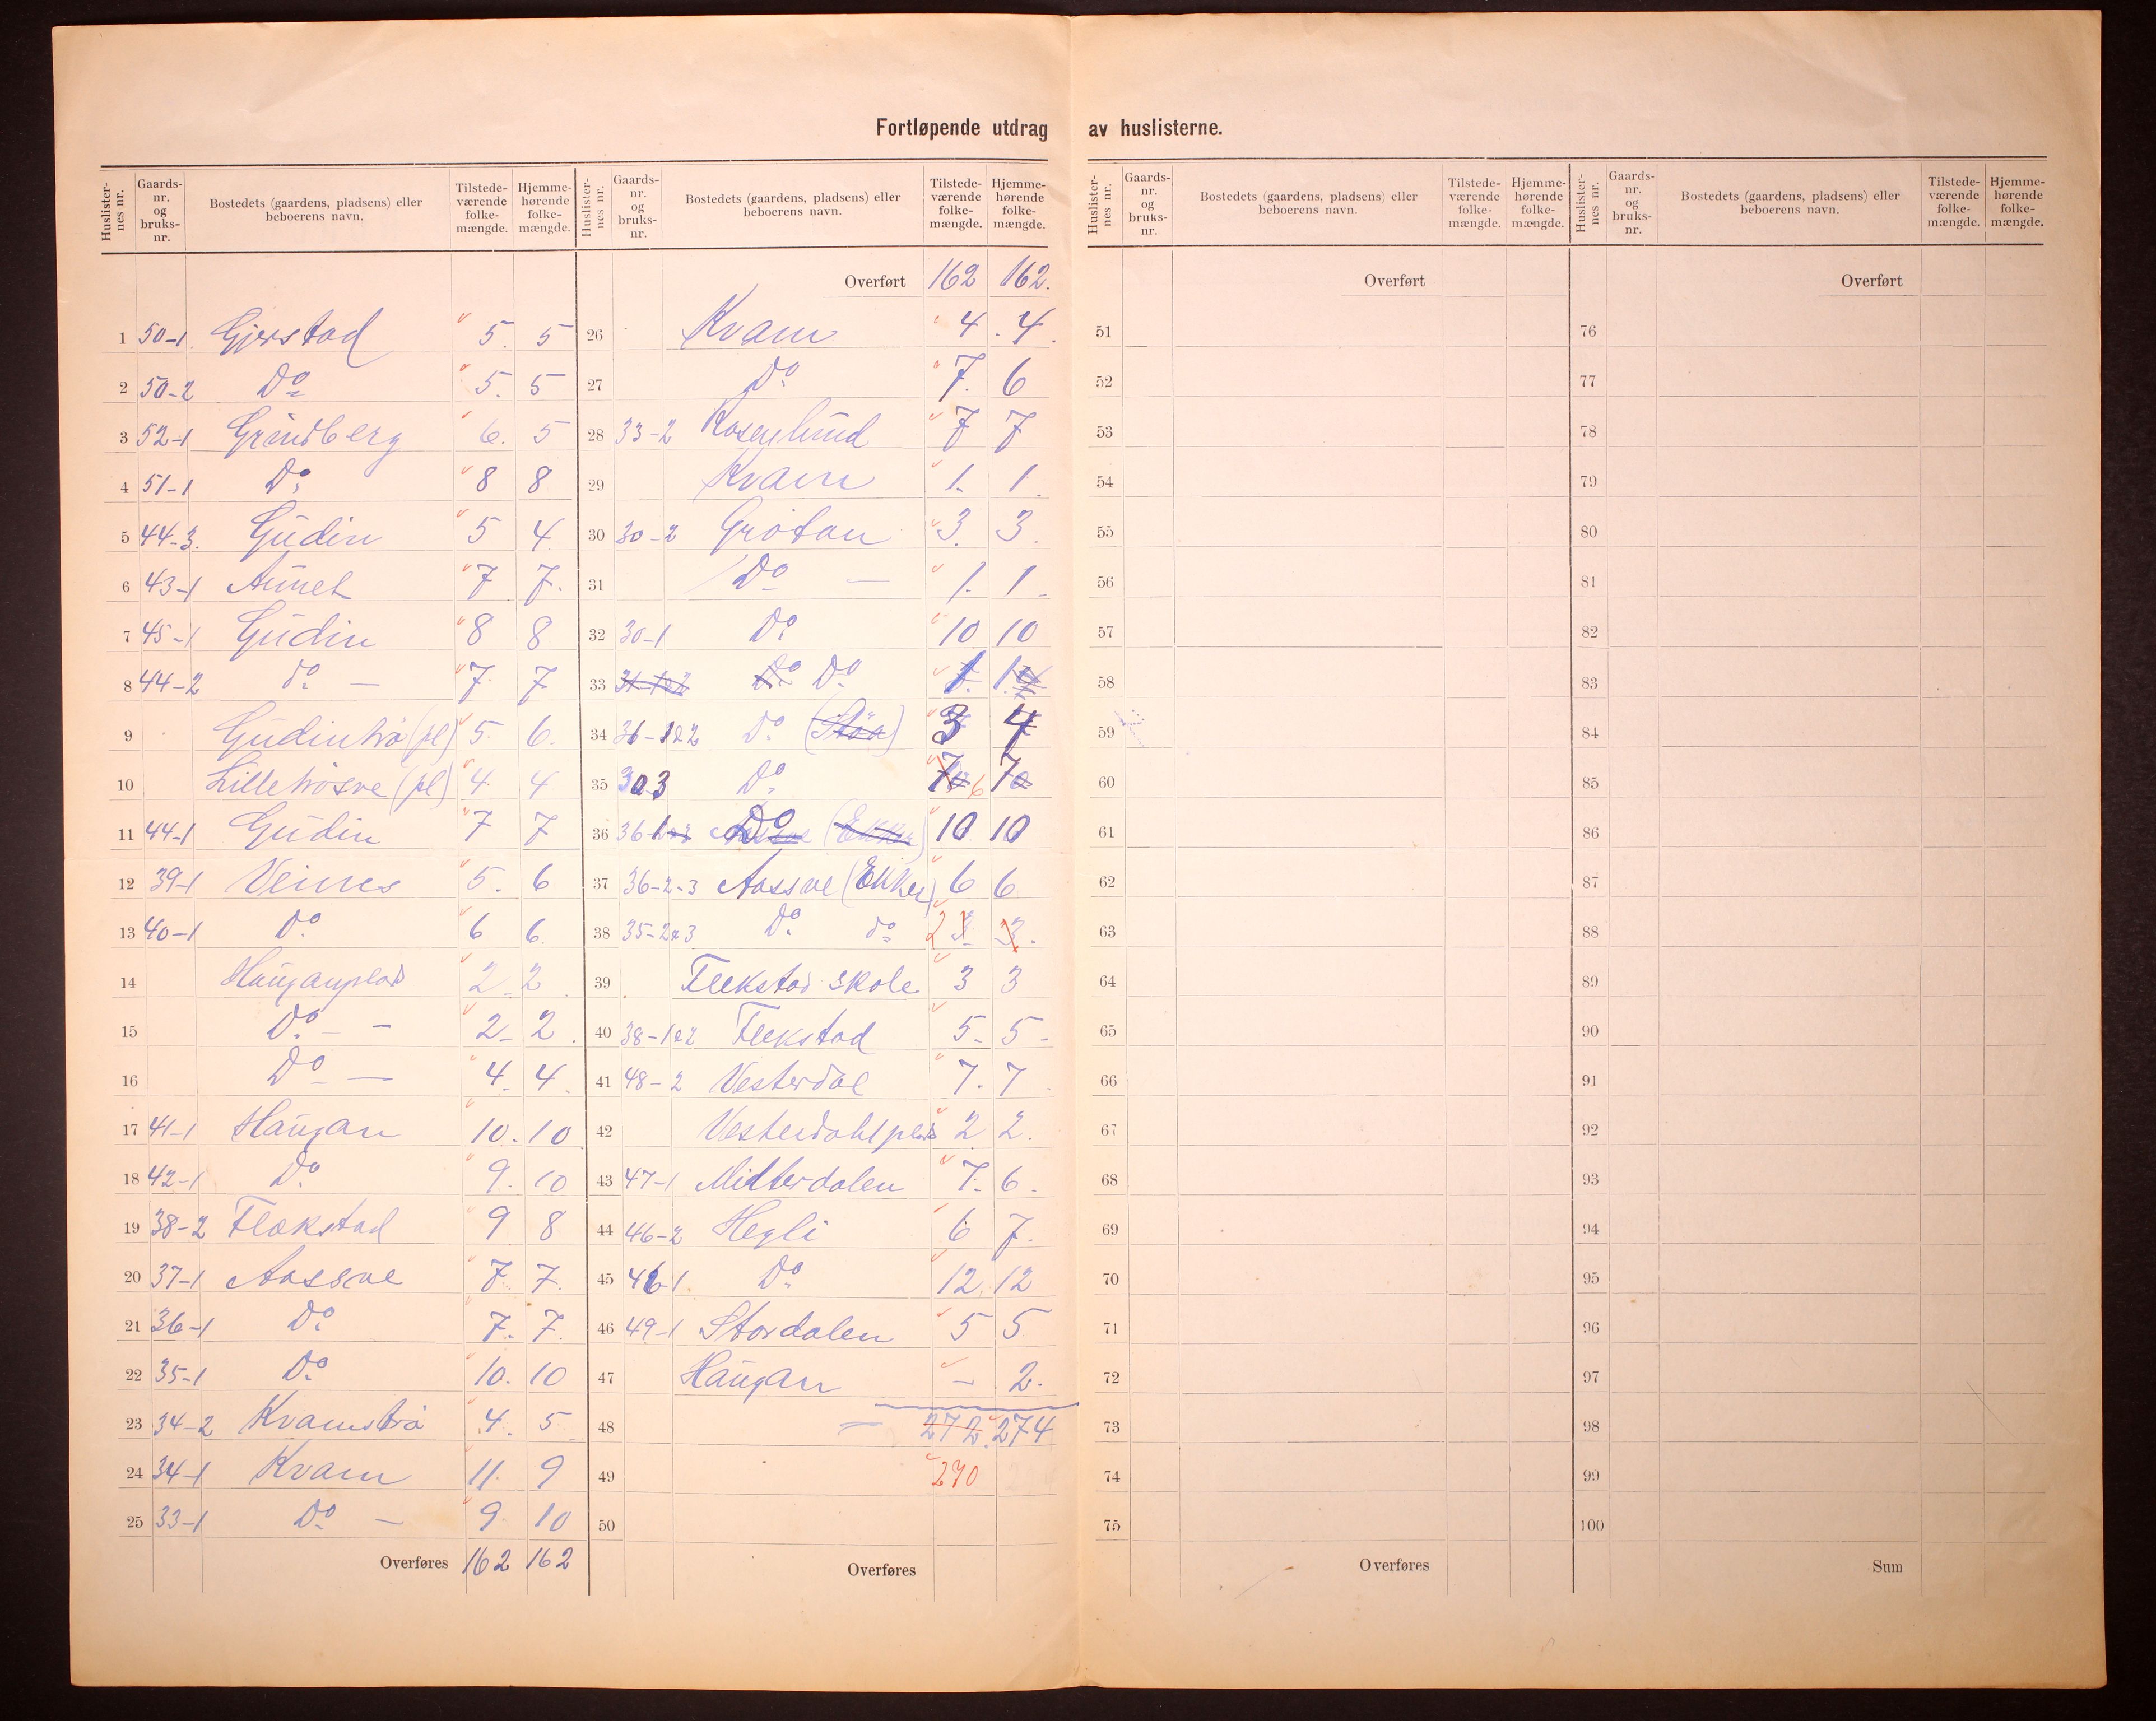 Fortløpende utdrag av huslisterne.
Huslister-nes nr. Gaards-nr. og bruks-nr. Bostedets (gaardens, pladsens) eller beboerens navn. Tilstede-værende folke-mængde. Hjemme-hørende folke-mængde.
1 50-1 Gjerstad 5. 5
2 50-2 Do 5. 5
3 52-1 Grindberg 6. 5
4 51-1 Do 8 8
5 44-3. Gudin 5 4
6 43-1 Aunet 7 7.
7 45-1 Gudin 8 8
8 44-2 do — 7. 7
9 Gudintrø (pl) 5. 6.
10 Lilletrøsve (pl) 4. 4
11 44-1 Gudin 7 7
12 39-1 Veines 5. 6
13 40-1 Do 6 6.
14 Hauganplads 2 2
15 Do — 2 2
16 Do — 4. 4
17 41-1 Haugan 10. 10
18 42-1 Do 9. 10
19 38-2 Flækstad 9 8
20 37-1 Aassve 7. 7.
21 36-1 Do 7. 7.
22 35-1 Do 10. 10
23 34-2 Kvamstrø 4. 5
24 34-1 Kvam 11. 9
25 33-1 Do — 9 10
Overføres 162 162
Huslister-nes nr. Gaards-nr. og bruks-nr. Bostedets (gaardens, pladsens) eller beboerens navn. Tilstede-værende folke-mængde. Hjemme-hørende folke-mængde.
Overført 162 162.
26 Kvam 4. 4.
27 Do 7. 6
28 33-2 Rosenlund 7 7
29 Kvam 1. 1
30 30-2 Grøtan 3. 3.
31 Do — 1. 1
32 30-1 Do 10 10
33 31-1&2 Do Do 1. 1.
34 31-1&2 Do (Støa) 3 4
35 30.3 Do 7 6 7
36 36-1 Do (Ekker) 10 10
37 36-2-3 Aassve (Ekker) 6 6
38 35-2&3 Do do 2 3 3.
39 Flekstad skole 3 3
40 38-1&2 Flekstad 5. 5
41 48-2 Vesterdal 7. 7
42 Vesterdahlplads 2 2.
43 47-1 Mitterdalen 7. 6.
44 46-2 Hegli 6 7.
45 46-1 Do 12. 12
46 49-1 Stordalen 5 5
47 Haugan — 2.
48 — 272. 274
49 270
50
Overføres
Huslister-nes nr. Gaards-nr. og bruks-nr. Bostedets (gaardens, pladsens) eller beboerens navn. Tilstede-værende folke-mængde. Hjemme-hørende folke-mængde.
Overført
51
52
53
54
55
56
57
58
59
60
61
62
63
64
65
66
67
68
69
70
71
72
73
74
75
Overføres
Huslister-nes nr. Gaards-nr. og bruks-nr. Bostedets (gaardens, pladsens) eller beboerens navn. Tilstede-værende folke-mængde. Hjemme-hørende folke-mængde.
Overført
76
77
78
79
80
81
82
83
84
85
86
87
88
89
90
91
92
93
94
95
96
97
98
99
100
Sum